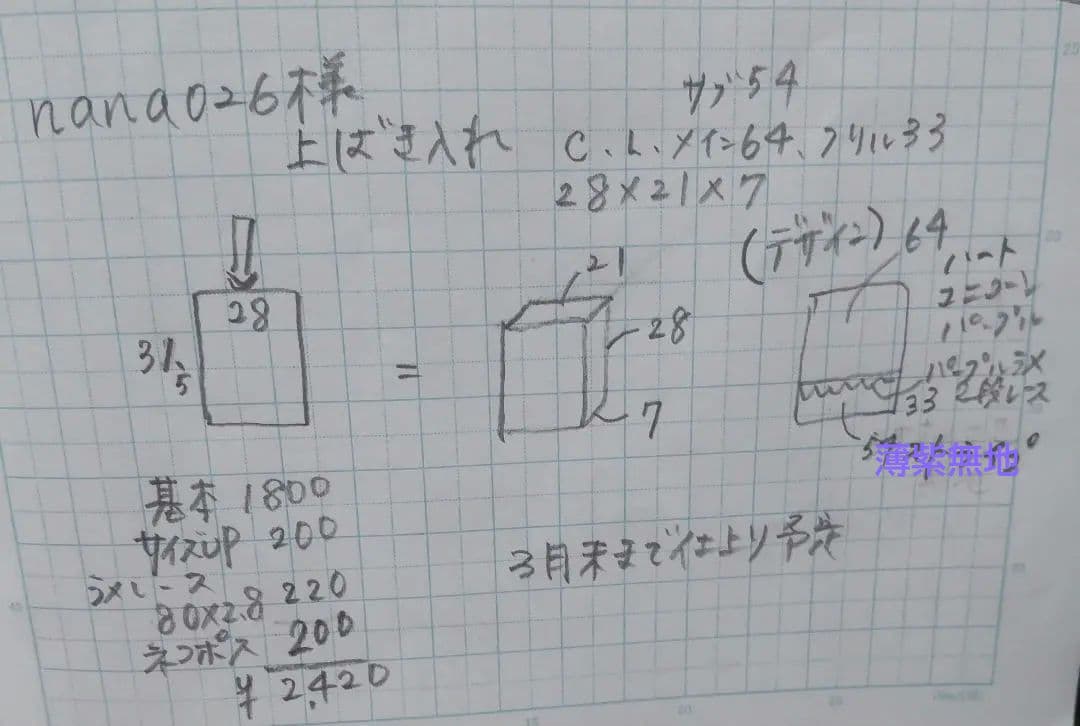 nana026様
上ばき入れ
サブ54
C、L、メイン64、フリル33
28×21×7
28
31.5
=
21
28
7
(デザイン)64
ハート
ユニコーン
パープル
パープルラメ
33 2段レース
54
薄紫無地
基本 1800
サイズUP 200
ラメレース
80×2.8 220
ネコポス 200
¥2,420
3月末まで仕上り予定